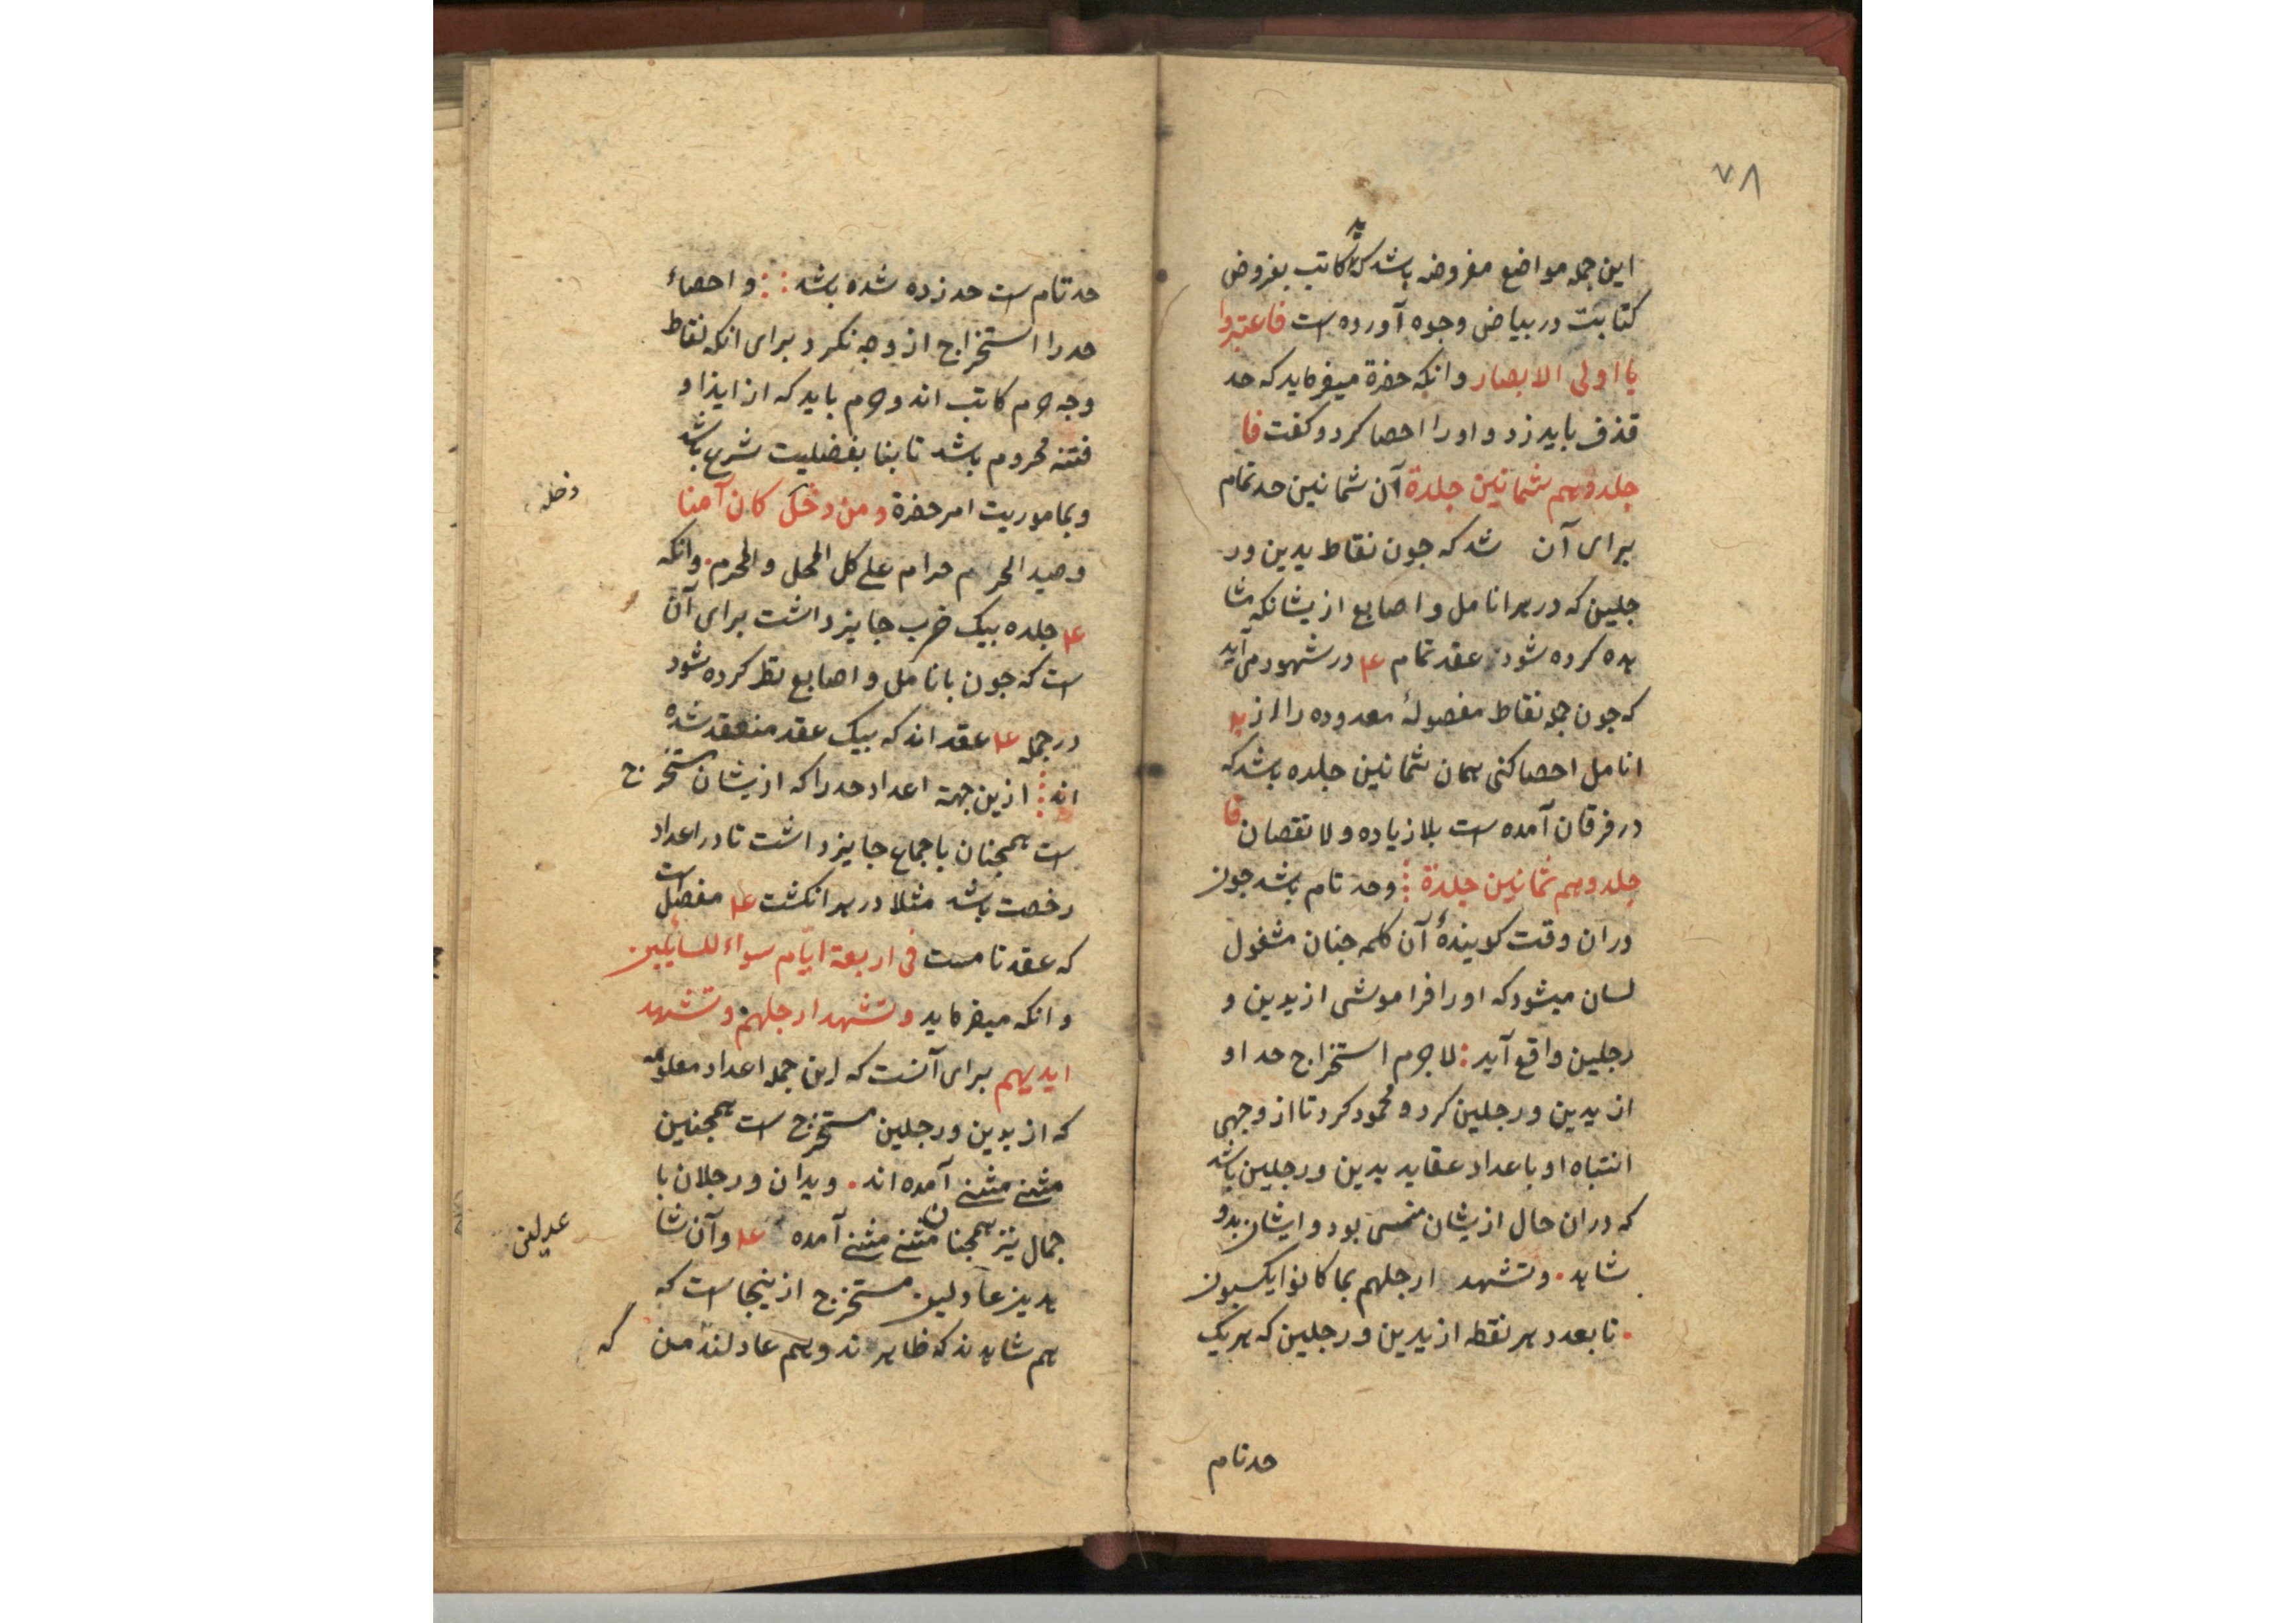 ٧٨
این جمله مواضع مفروضه باشد که ید کاتب بفروض
کتابت در بیاض وجوه آورده است فاعتبروا
یا اولی الابصار وانکه حضرة میفرماید که حد
قذف باید زد و اورا احصا کرد و کفت فا
جلدوهم ثمانین جلدة آن ثمانین حد تمام
برای آن شد که جون نقاط یدین ور
جلین که در هر انامل و اصابع ازیشانکه مشا
هده کرده شود عقد تمام ۴ در شهود می آید
که جون جمله نقاط مفصولهٔ معدوده را از ید
انامل احصا کنی همان ثمانین جلده باشد که
در فرقان آمده است بلا زیاده و لا نقصان فا
جلدوهم ثمانین جلدة وحد تام باشد جون
دران وقت کویندهٔ آن کلمه جنان مشغول
لسان میشود که اورا فراموشی از یدین و
رجلین واقع آید لاجرم استخراج حد او
از یدین و رجلین کرد و محمود کرد تا از وجهی
انتباه او باعداد عقاید یدین و رجلین باشد
که دران حال ازیشان منسی بود و ایشان بدو
شاهد. وتشهد ارجلهم بما کانوا یکسبون
. تا بعدد هر نقطه از یدین و رجلین که هر یک
حد تام
حد تام است حد زده شده باشد و احصاء
حد را استخراج از وجه نکرد برای انکه نقاط
وجه حرم کاتب اند و حرم باید که از ایذا و
فتنه محروم باشد تا بنا بفضلیت شرع باشد
وبماموریت امر حضرة ومن دخل کان آمنا
دخله
وصید الحرم حرام علی کل المحل و المحرم. وانکه
۴ جلده بیک ضرب جایز داشت برای آن
است که جون بانامل و اصابع نظر کرده شود
در جمله ۴ عقد اند که بیک عقد منعقد شده
اند ازین جهة اعداد حد را که ازیشان مستخرج
است همجنان باجماع جایز داشت تا در اعداد
رخصت باشد مثلا در هر انکشت ۴ مفصل است
که عقد تامست فی اربعة ایّام سواء للسائلین
وانکه میفرماید وتشهد ارجلهم وتشهد
ایدیهم برای آنست که این جمله اعداد معلومه
که از یدین و رجلین مستخرج است همجنین
مثنی مثنی آمده اند. ویدان و رجلان با
جمال نیز همجنان مثنی مثنی آمده ۴ وآن شا
هدین عادلین مستخرج ازینجا است که
عدلین
هم شاهدند که ظاهرند و هم عادلند من که